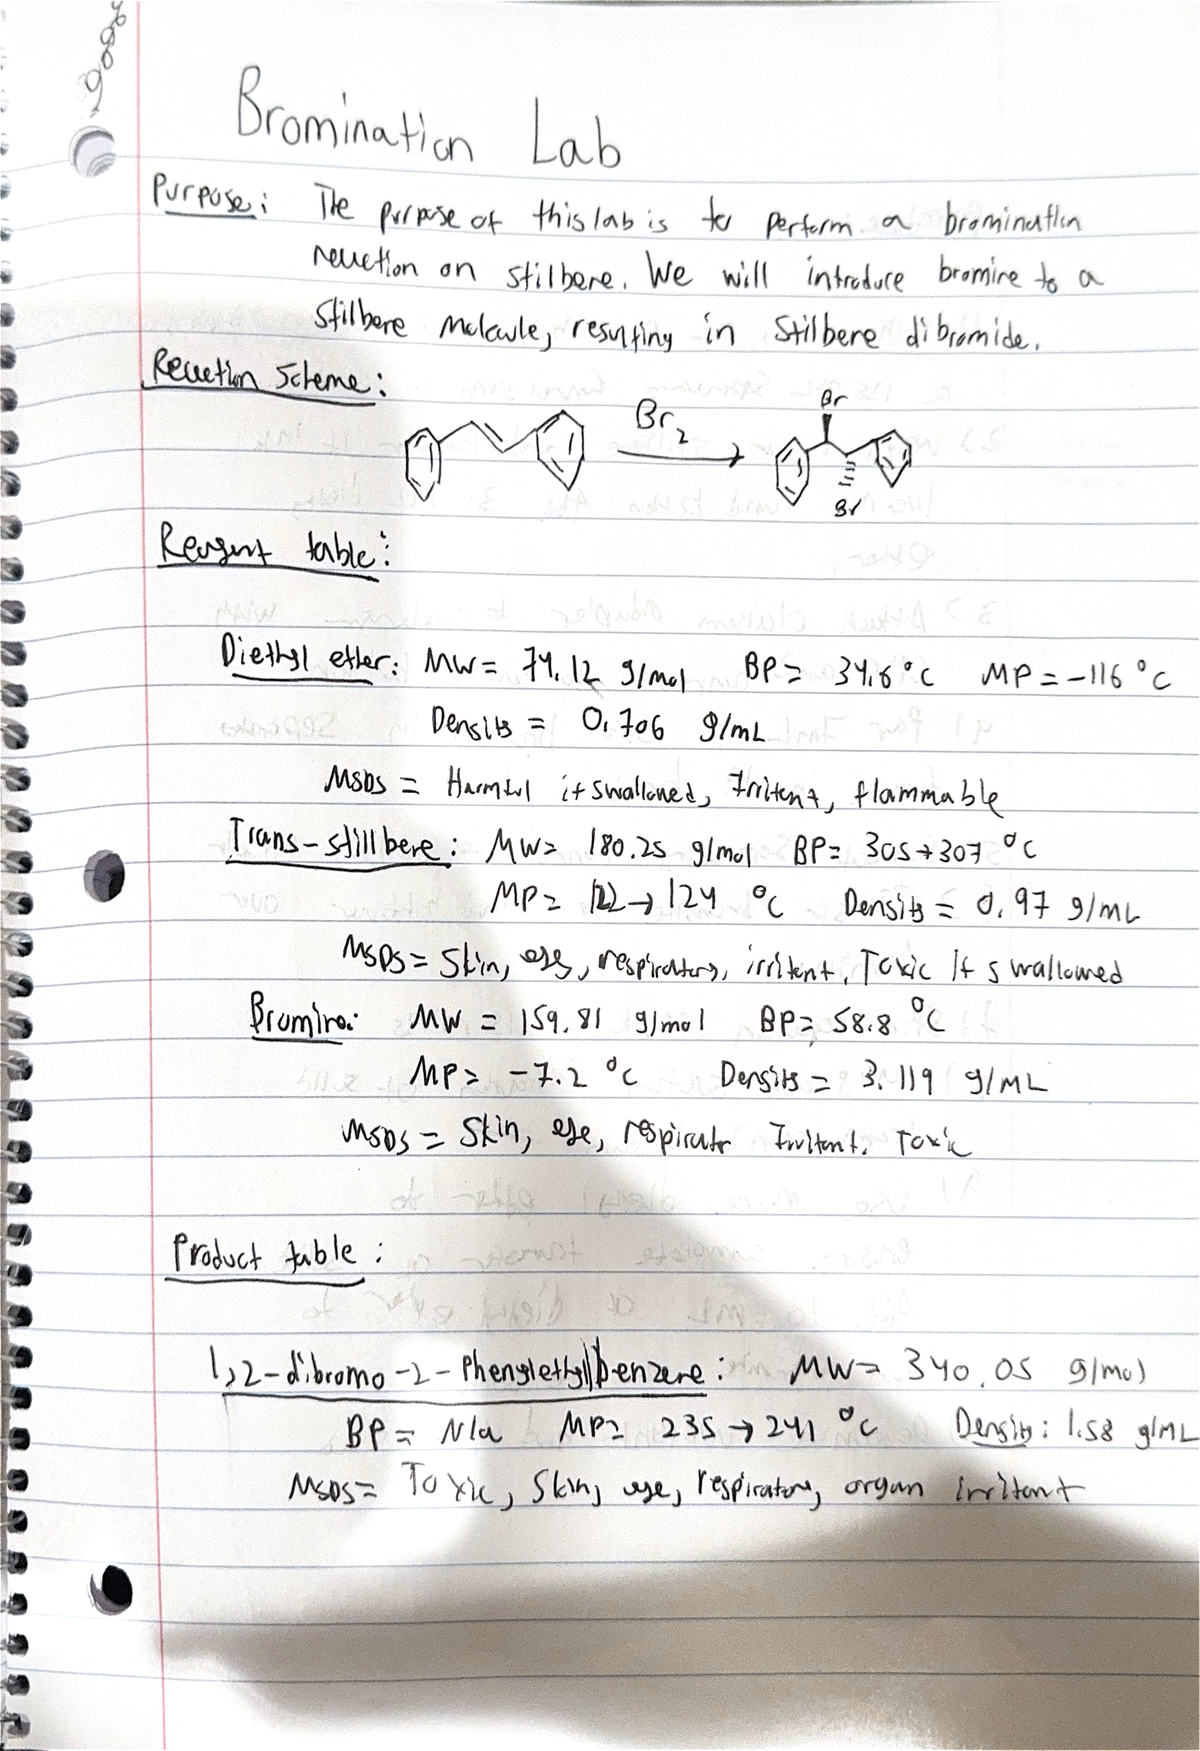 Bromination Lab
Purpose: The purpose of this lab is to perform a bromination
reaction on stilbene. We will introduce bromine to a
Stilbene molecule, resulting in Stilbene dibromide.
Reaction Scheme:
Br
Br2
Br
Reagent table:
Diethyl ether: MW= 74.12 g/mol BP= 34.6 °C MP = -116 °C
Density = 0.706 g/mL
MSDS = Harmful if swallowed, Irritent, flammable
Trans-stillbene: MW= 180.25 g/mol BP= 305→307 °C
MP= 122→124 °C Density = 0.97 g/mL
MSDS= Skin, eye, respiratory, irritent. Toxic If swallowed
Bromine: MW = 159.81 g/mol BP= 58.8 °C
MP= -7.2 °C Density = 3.119 g/mL
MSDS = Skin, eye, respirator Irritant. Toxic
Product table:
1,2-dibromo-2-Phenylethyl)benzene: MW= 340.05 g/mol
BP = N/a MP= 235→241 °C Density: 1.58 g/mL
MSDS= Toxic, Skin, eye, respiratory, organ irritant